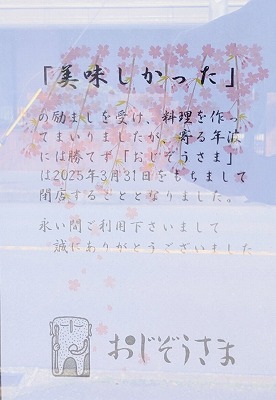 「美味しかった」
の励ましを受け、料理を作っ
てまいりましたが、寄る年波
には勝てず「おじぞうさま」
は2025年3月31日をもちまして
閉店することとなりました。
永い間ご利用下さいまして
誠にありがとうございました
おじぞうさま